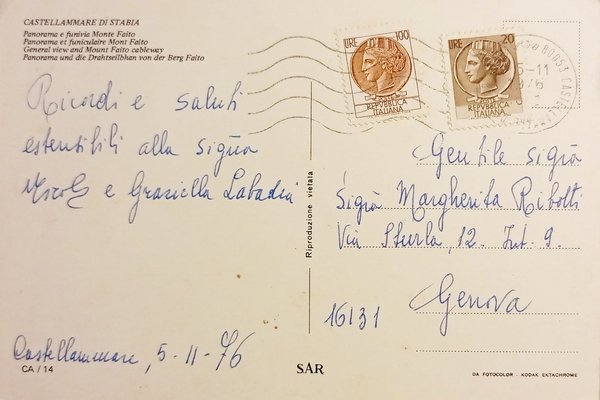 CASTELLAMMARE DI STABIA
Panorama e funivia Monte Faito
Panorama et funiculaire Mont Faito
General view and Mount Faito cableway
Panorama und die Drahtseilbhan von der Berg Faito
LIRE 100
REPVBBLICA
ITALIANA
LIRE 20
REPVBBLICA
ITALIANA
Ricordi e saluti
estentibili alla sigra
e Graziella
Castellammare, 5-11-76
CA / 14
Riproduzione vietata
SAR
Gentile sigra
Sigra Margherita Ribolti
Via Sturla, 12. Int. 9.
16131 Genova
DA FOTOCOLOR - KODAK EKTACHROME